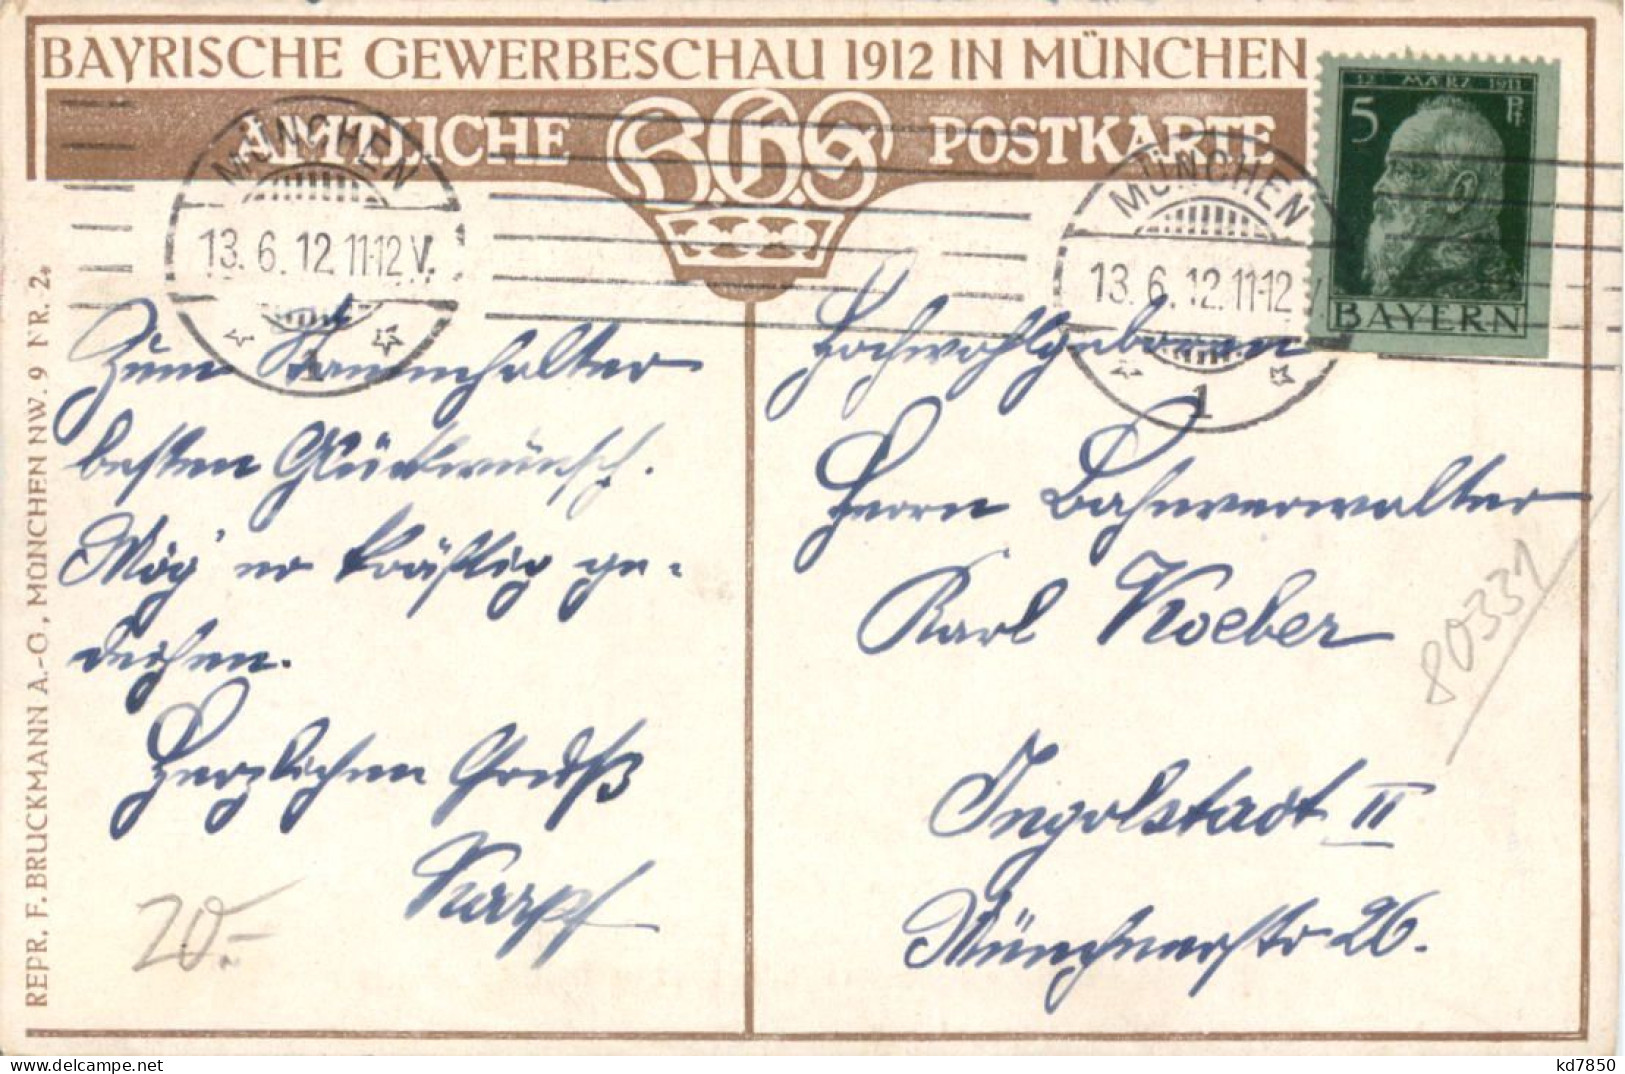 BAYRISCHE GEWERBESCHAU 1912 IN MÜNCHEN
AMTLICHE B.G.S POSTKARTE
12 MÄRZ 1911
5 Pf
BAYERN
MÜNCHEN
13.6.12.11-12 V.
1
MÜNCHEN
13.6.12.11-12 V
1
Zum Stammhalter
besten Glückwunsch.
Mög' er kräftig ge-
deihen.
Herzlichen Gruß
Karpf
Hochwohlgeboren
Herrn Bahnverwalter
Karl Koeber
Ingolstadt II
Münchnerstr 26.
20.-
80331
REPR. F. BRUCKMANN A.-G., MÜNCHEN NW. 9 NR. 2.
kd7850